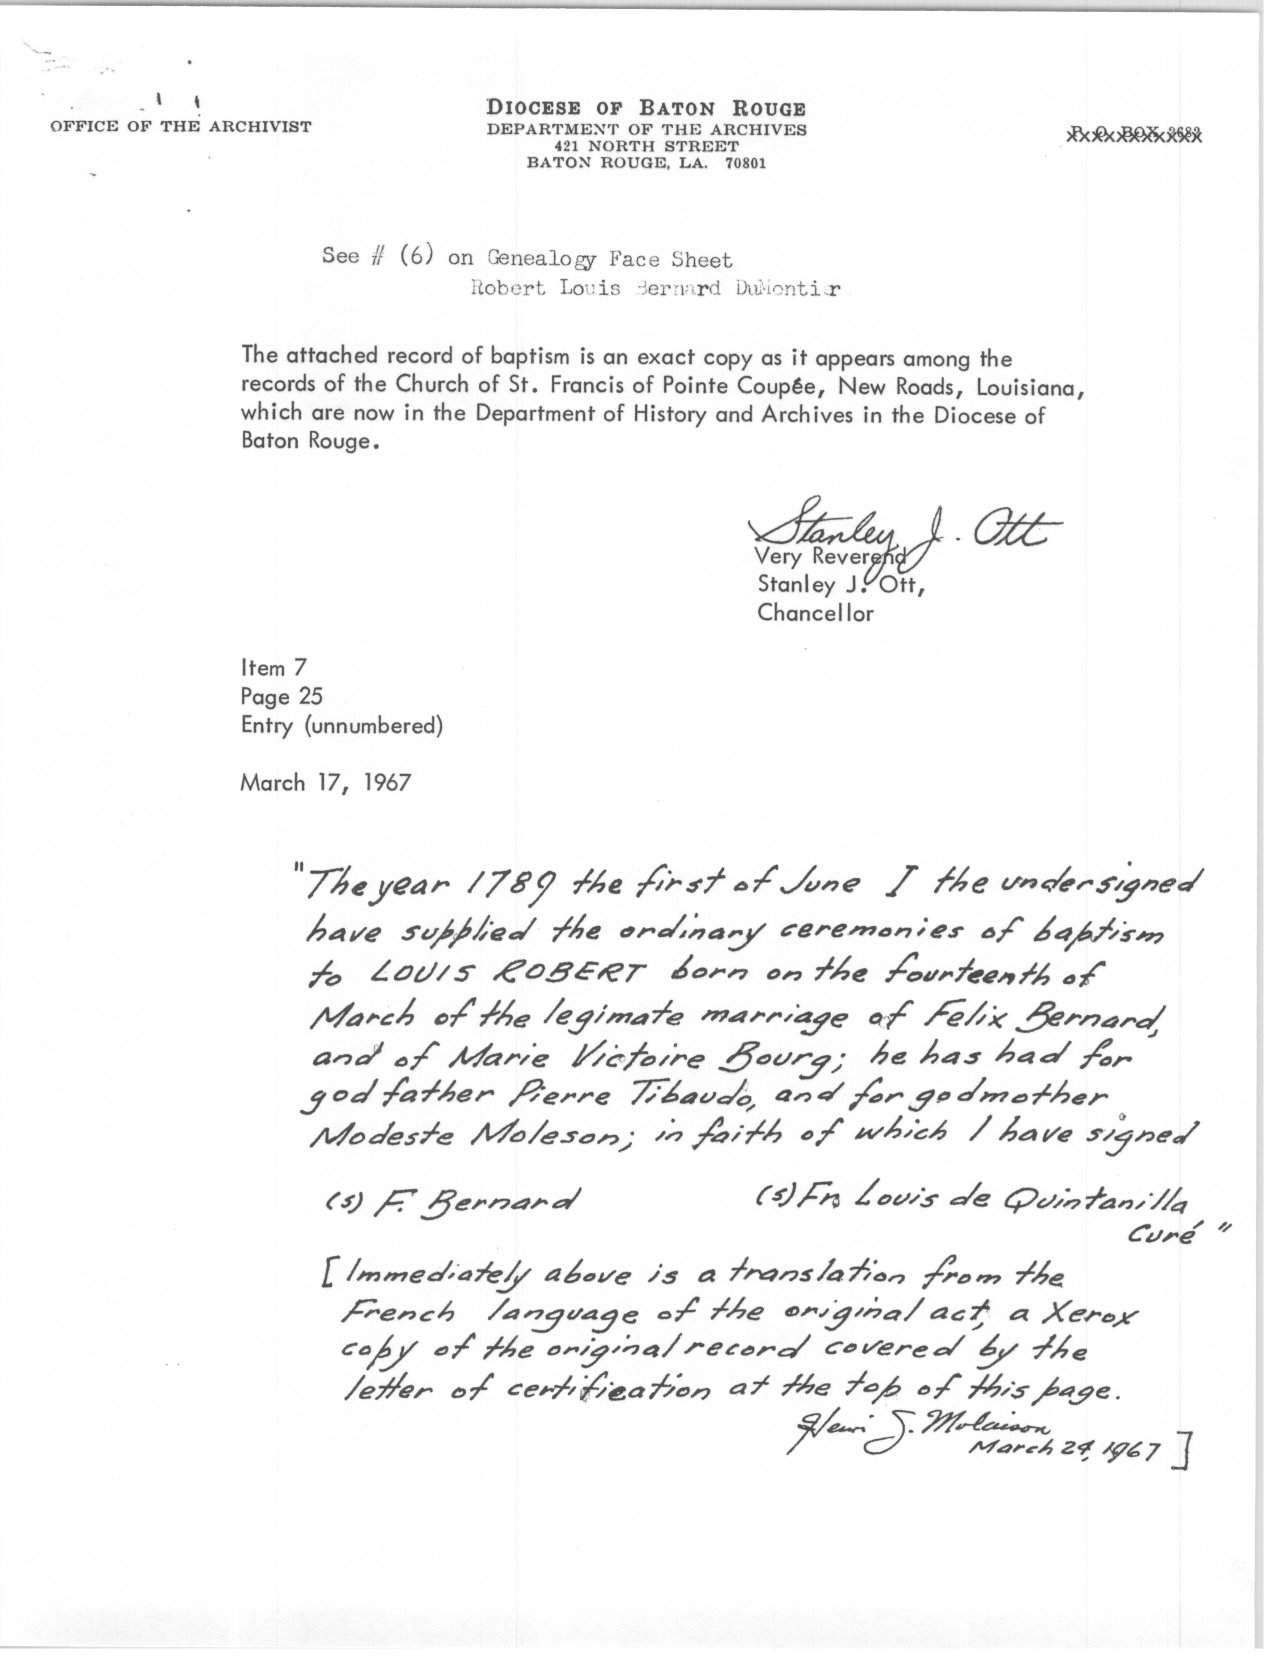 OFFICE OF THE ARCHIVIST
DIOCESE OF BATON ROUGE
DEPARTMENT OF THE ARCHIVES
421 NORTH STREET
BATON ROUGE, LA. 70801
P. O. BOX 2682
See # (6) on Genealogy Face Sheet
Robert Louis Bernard DuMontier
The attached record of baptism is an exact copy as it appears among the
records of the Church of St. Francis of Pointe Coupée, New Roads, Louisiana,
which are now in the Department of History and Archives in the Diocese of
Baton Rouge.
Stanley J. Ott
Very Reverend
Stanley J. Ott,
Chancellor
Item 7
Page 25
Entry (unnumbered)
March 17, 1967
"The year 1789 the first of June I the undersigned
have supplied the ordinary ceremonies of baptism
to LOUIS ROBERT born on the fourteenth of
March of the legimate marriage of Felix Bernard,
and of Marie Victoire Bourg; he has had for
godfather Pierre Tibaudo, and for godmother
Modeste Moleson; in faith of which I have signed
(s) F. Bernard (s) Fr. Louis de Quintanilla
Curé"
[Immediately above is a translation from the
French language of the original act, a Xerox
copy of the original record covered by the
letter of certification at the top of this page.
Henri S. Molaison
March 24, 1967]